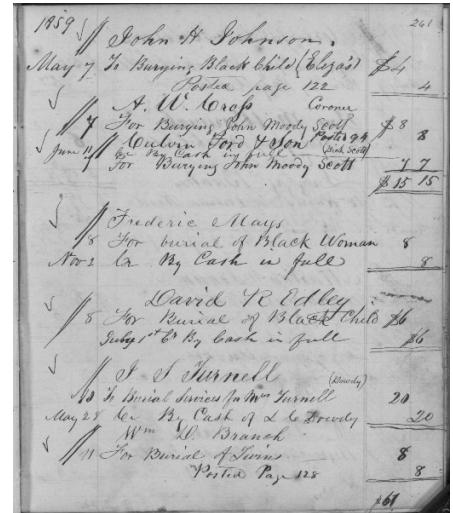 1859 261
John H Johnson.
May 7 To Burying Black Child (Eliza's) $4
Posted page 122 4
A. W. Cross Coroner
7 For Burying John Moody Scott $8 8
Calvin Ford & Son Posted 94
June 11 Cr By Cash in full (Dick Scott)
7 For Burying John Moody Scott 7 7
$15 15
Frederic Mays
8 For burial of Black Woman 8
Nov 2 Cr By Cash in full 8
David R Edley
8 For Burial of Black Child $6
July 1st Cr By Cash in full $6
J J Turnell (Dowdy)
10 To Burial Services for Mrs Turnell 20
May 28 Cr By Cash of L C Dowdy 20
Wm D. Branch
11 For Burial of Twins 8
Posted Page 128 8
$61